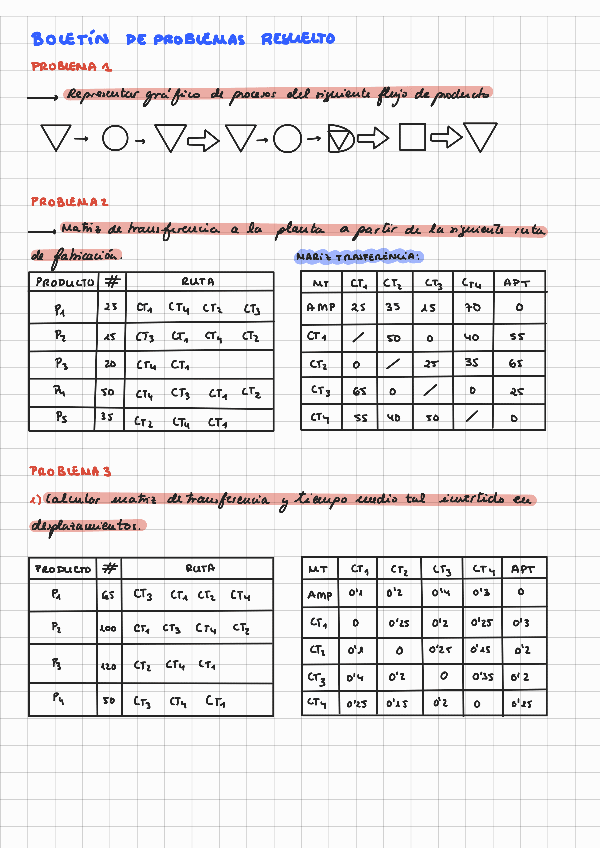 BOLETÍN DE PROBLEMAS RESUELTO
PROBLEMA 1
Representar gráfico de procesos del siguiente flujo de producto
PROBLEMA 2
Matriz de transferencia a la planta a partir de la siguiente ruta
de fabricación.
MARIZ TRANFERENCIA:
PRODUCTO # RUTA
P1 25 CT1 CT4 CT2 CT3
P2 15 CT3 CT1 CT4 CT2
P3 20 CT4 CT1
P4 50 CT4 CT3 CT1 CT2
P5 35 CT2 CT4 CT1
MT CT1 CT2 CT3 CT4 APT
AMP 25 35 15 70 0
CT1 / 50 0 40 55
CT2 0 / 25 35 65
CT3 65 0 / 0 25
CT4 55 40 50 / 0
PROBLEMA 3
1) Calcular matriz de transferencia y tiempo medio tal invertido en
desplazamientos.
PRODUCTO # RUTA
P1 65 CT3 CT1 CT2 CT4
P2 100 CT1 CT3 CT4 CT2
P3 120 CT2 CT4 CT1
P4 50 CT3 CT4 CT1
MT CT1 CT2 CT3 CT4 APT
AMP 0'1 0'2 0'4 0'3 0
CT1 0 0'25 0'2 0'25 0'3
CT2 0'1 0 0'25 0'15 0'2
CT3 0'4 0'2 0 0'35 0'2
CT4 0'25 0'15 0'2 0 0'15